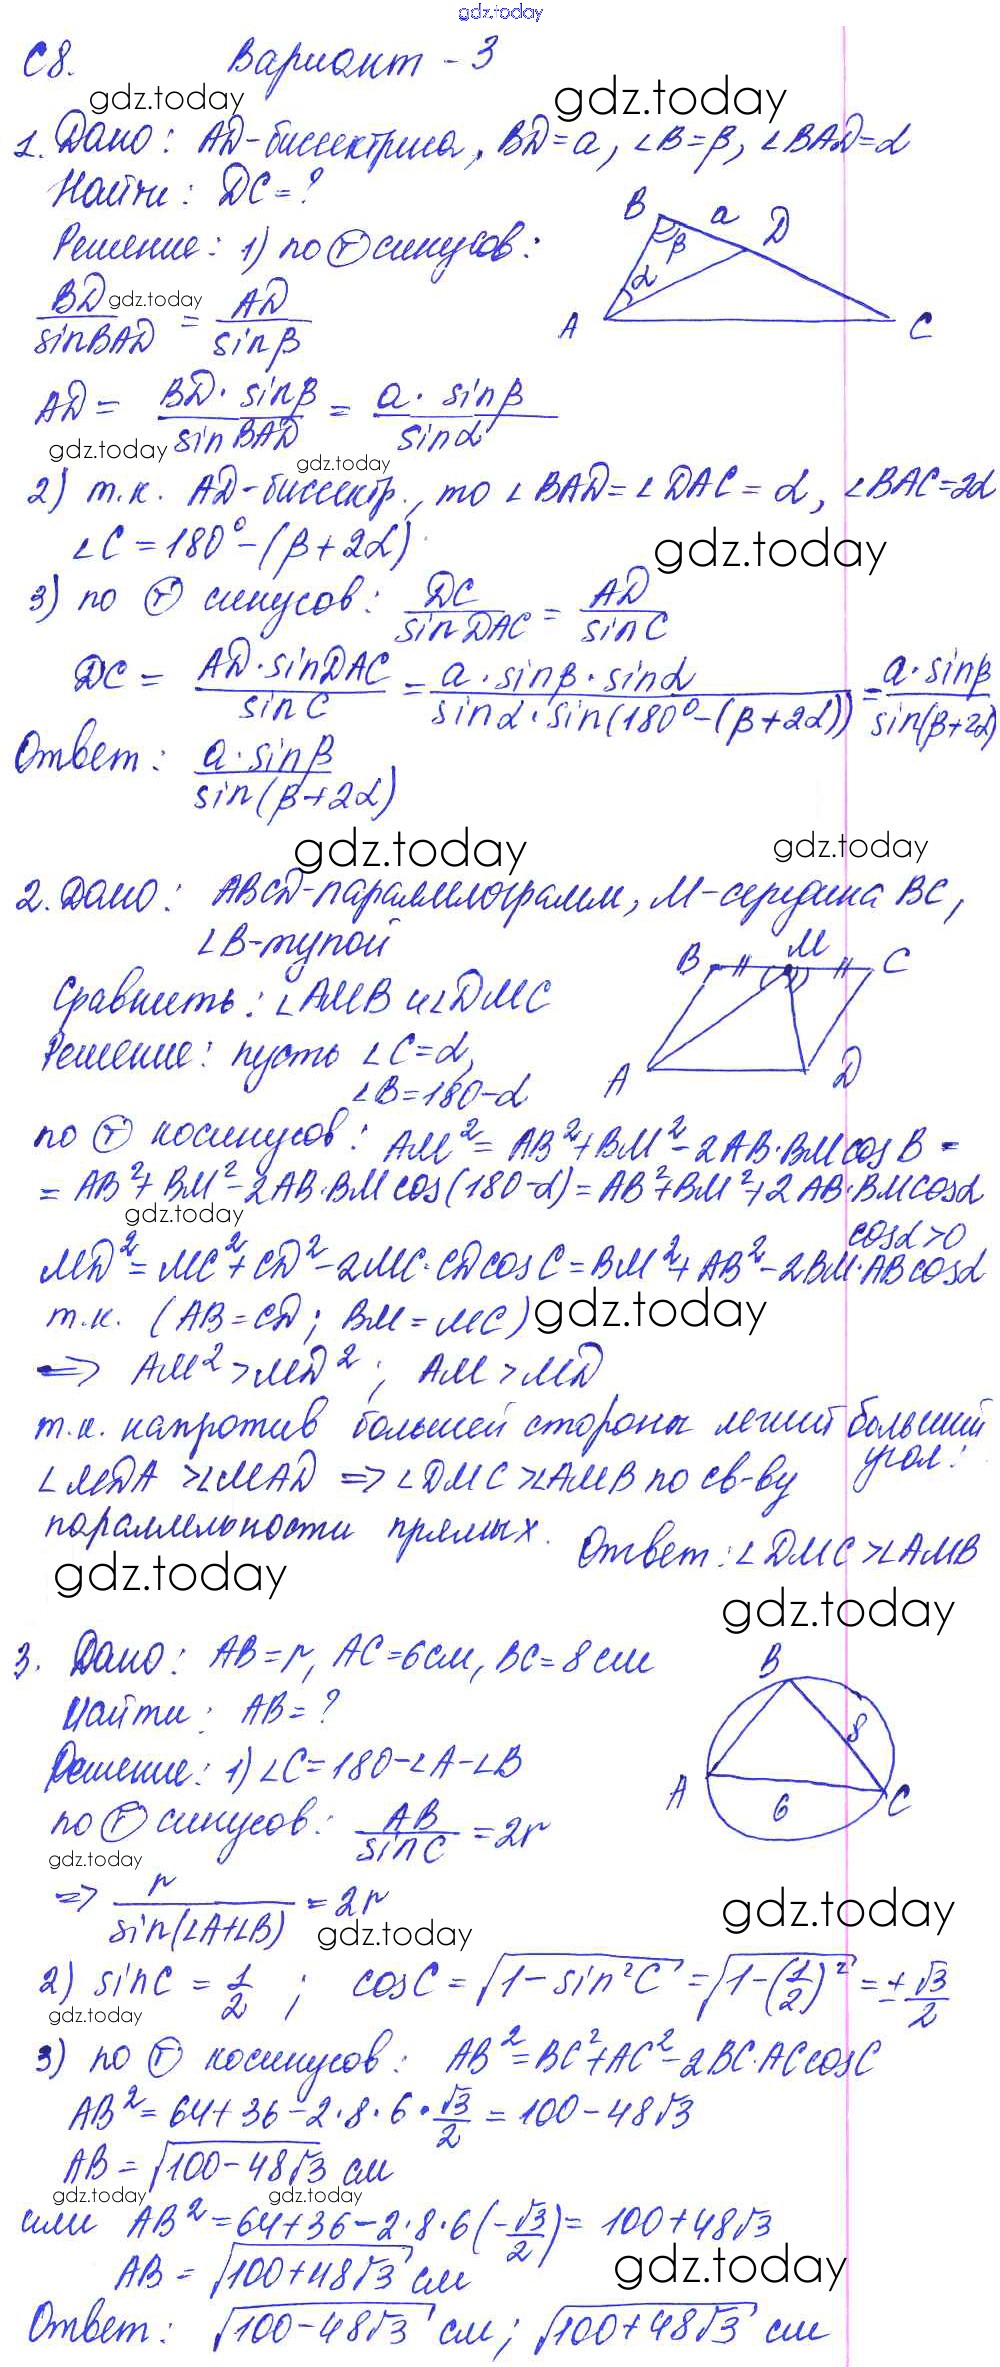 gdz.today
С8. Вариант - 3
gdz.today gdz.today
1. Дано: AD-биссектриса, BD=a, ∠B=β, ∠BAD=α
Найти: DC=?
Решение: 1) по Ⓣ синусов:
B a D
β
α
A C
BD/sinBAD = AD/sinβ
gdz.today
AD = BD·sinβ/sinBAD = a·sinβ/sinα
gdz.today gdz.today
2) т.к. AD-биссектр., то ∠BAD=∠DAC=α, ∠BAC=2α
∠C=180°-(β+2α)
gdz.today
3) по Ⓣ синусов: DC/sinDAC = AD/sinC
DC = AD·sinDAC/sinC = a·sinβ·sinα/sinα·sin(180°-(β+2α)) = a·sinβ/sin(β+2α)
Ответ: a·sinβ/sin(β+2α)
gdz.today gdz.today
2. Дано: ABCD-параллелограмм, M-середина BC,
∠B-тупой
B M C
A D
Сравнить: ∠AMB и ∠DMC
Решение: пусть ∠C=α,
∠B=180-α
по Ⓣ косинусов: AM²= AB²+BM²-2AB·BM cosB =
= AB²+BM²-2AB·BM cos(180-α)=AB²+BM²+2AB·BM cosα
gdz.today
cosα>0
MD²=MC²+CD²-2MC·CD cosC=BM²+AB²-2BM·AB cosα
т.к. (AB=CD; BM=MC)
gdz.today
=> AM²>MD²; AM>MD
т.к. напротив большей стороны лежит больший
угол:
∠MDA >∠MAD => ∠DMC>∠AMB по св-ву
параллельности прямых.
Ответ: ∠DMC>∠AMB
gdz.today
gdz.today
3. Дано: AB=r, AC=6см, BC=8см
Найти: AB=?
B
8
A 6 C
Решение: 1) ∠C=180-∠A-∠B
по Ⓣ синусов: AB/sinC = 2r
gdz.today
=> r/sin(∠A+∠B) = 2r
gdz.today
gdz.today
2) sinC = 1/2; cosC=√(1-sin²C)=√(1-(1/2)²)=±√3/2
gdz.today
3) по Ⓣ косинусов: AB²=BC²+AC²-2BC·AC cosC
AB²=64+36-2·8·6·√3/2 = 100-48√3
AB=√(100-48√3) см
gdz.today gdz.today
или AB²=64+36-2·8·6(-√3/2)= 100+48√3
AB = √(100+48√3) см
gdz.today
Ответ: √(100-48√3) см; √(100+48√3) см